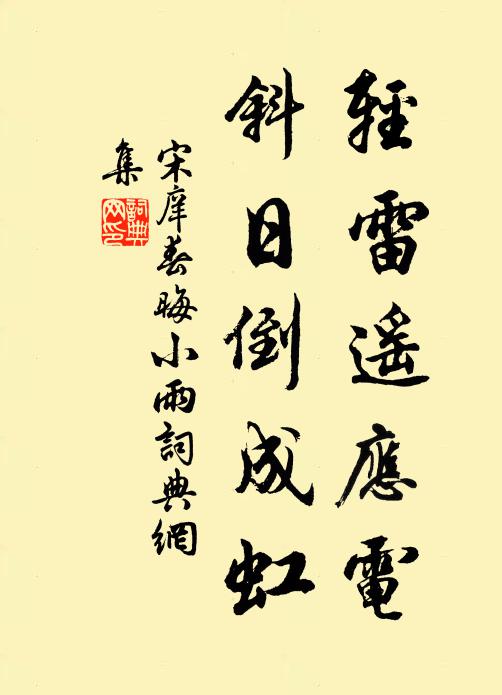 輕雷遥應電
斜日倒成虹
宋庠春晦小雨詞典網
集
詞典
网印